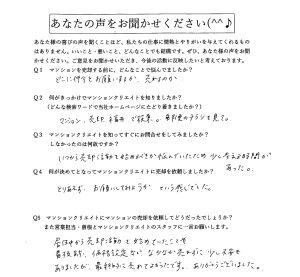 あなたの声をお聞かせください(^^♪
お客様の喜びの声を聞くことほど、私たちの仕事に情熱とやりがいを与えてくれるものはありません。
Q1 マンションを売却する前に、どんなことで悩んでいましたか?
どこに仲介をお願いするか、売れるか
Q2 何がきっかけでマンションクリエイトを知りましたか?
(どんな検索ワードで当社ホームページにたどり着きましたか?)
マンション、売却
で検索。
チラシを見て。
Q3 マンションクリエイトを知ってすぐにお問合せをしてみましたか?
しなかったのは何故ですか?
いつから売却活動を始めるべきか悩んでいたため 少し考える時間があった。
Q4 何が決めてとなってマンションクリエイトに売却を依頼しましたか?
とりあえず、お願いしてみようか、という感じでした。
Q5 マンションクリエイトにマンションの売却を依頼してどうだったでしょうか?
また営業担当・曽根とマンションクリエイトのスタッフに一言お願いします。
売却活動を始めていたことや
価格設定など なかなか売れずに 少し不安も
ありましたが、最終的に売れてよかったです。ありがとうございました。